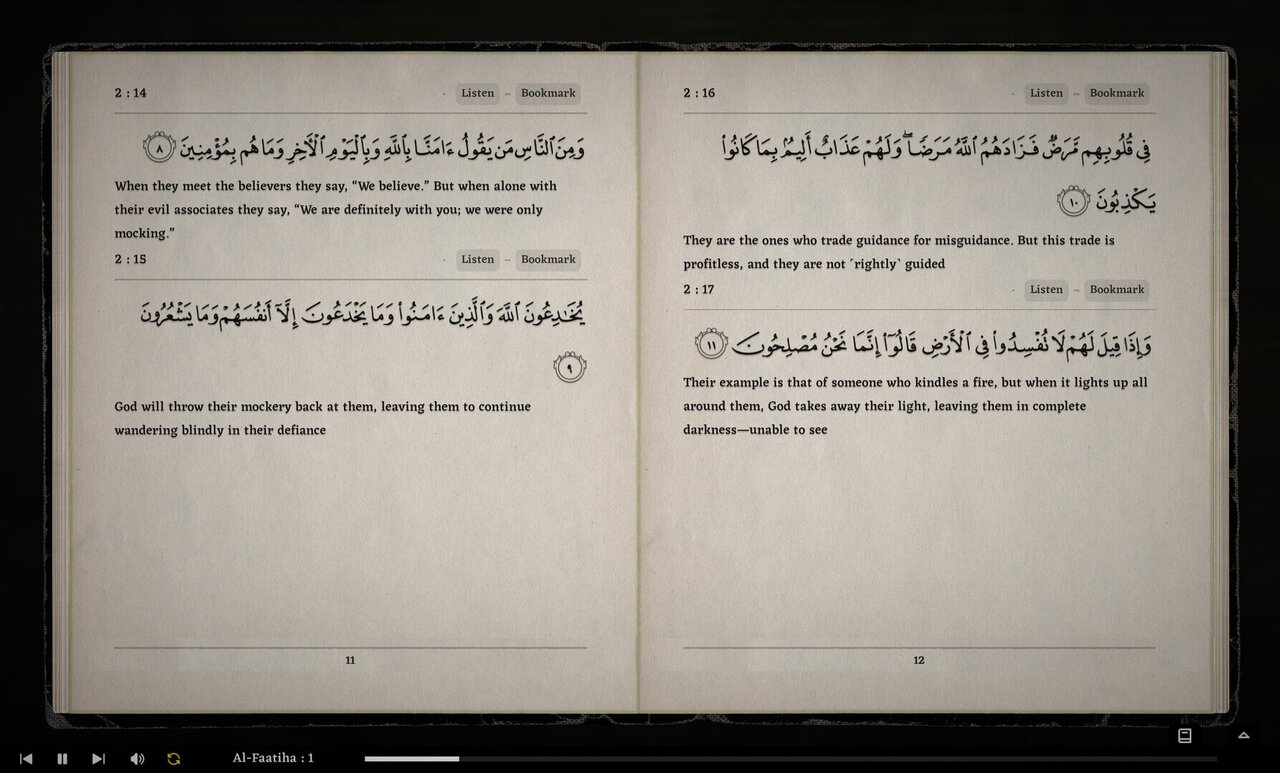 2 : 14 Listen Bookmark
وَمِنَ ٱلنَّاسِ مَن يَقُولُ ءَامَنَّا بِٱللَّهِ وَبِٱلْيَوْمِ ٱلْأَخِرِ وَمَا هُم بِمُؤْمِنِينَ ٨
When they meet the believers they say, “We believe.” But when alone with
their evil associates they say, “We are definitely with you; we were only
mocking.”
2 : 15 Listen Bookmark
يُخَٰدِعُونَ ٱللَّهَ وَٱلَّذِينَ ءَامَنُوا۟ وَمَا يَخْدَعُونَ إِلَّآ أَنفُسَهُمْ وَمَا يَشْعُرُونَ
٩
God will throw their mockery back at them, leaving them to continue
wandering blindly in their defiance
11
2 : 16 Listen Bookmark
فِى قُلُوبِهِم مَّرَضٌ فَزَادَهُمُ ٱللَّهُ مَرَضًا ۖ وَلَهُمْ عَذَابٌ أَلِيمٌۢ بِمَا كَانُوا۟
يَكْذِبُونَ ١٠
They are the ones who trade guidance for misguidance. But this trade is
profitless, and they are not ˹rightly˺ guided
2 : 17 Listen Bookmark
وَإِذَا قِيلَ لَهُمْ لَا تُفْسِدُوا۟ فِى ٱلْأَرْضِ قَالُوٓا۟ إِنَّمَا نَحْنُ مُصْلِحُونَ ١١
Their example is that of someone who kindles a fire, but when it lights up all
around them, God takes away their light, leaving them in complete
darkness—unable to see
12
Al-Faatiha : 1